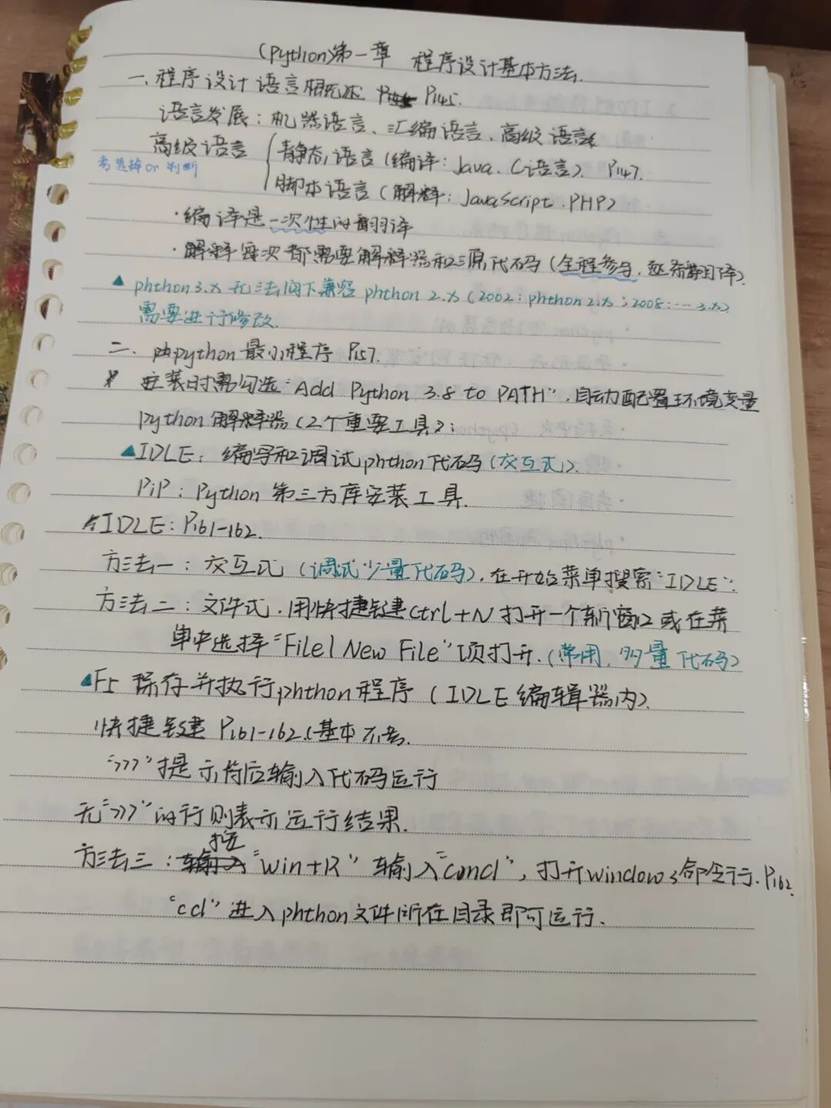 (Python)第一章 程序设计基本方法.
一、程序设计语言概述 P145.
语言发展：机器语言、汇编语言、高级语言
高级语言 静态语言（编译：Java、C语言） P147.
考选择or判断 脚本语言（解释：JavaScript、PHP）
·编译是一次性的翻译
·解释每次都需要解释器和源代码（全程参与,逐条翻译）.
▲phthon3.x无法向下兼容phthon 2.x（2002：phthon 2.x；2008：…3.x）
需要进行修改.
二、python最小程序 P157.
安装时需勾选“Add Python 3.8 to PATH”,自动配置环境变量
python解释器（2个重要工具）：
▲IDLE：编写和调试phthon代码（交互式）.
PiP：Python第三方库安装工具.
IDLE：P161-162.
方法一：交互式（调试少量代码）,在开始菜单搜索“IDLE”.
方法二：文件式.用快捷键ctrl+N打开一个新窗口或在菜
单中选择“File | New File”项打开.（常用,多量代码）
▲F5 保存并执行phthon程序（IDLE编辑器内）.
快捷键 P161-162（基本不考.
“>>>”提示符后输入代码运行
无“>>>”的行则表示运行结果.
方法三：按“win+R”输入“cmd”，打开windows命令行.P162.
“cd”进入phthon文件所在目录即可运行.